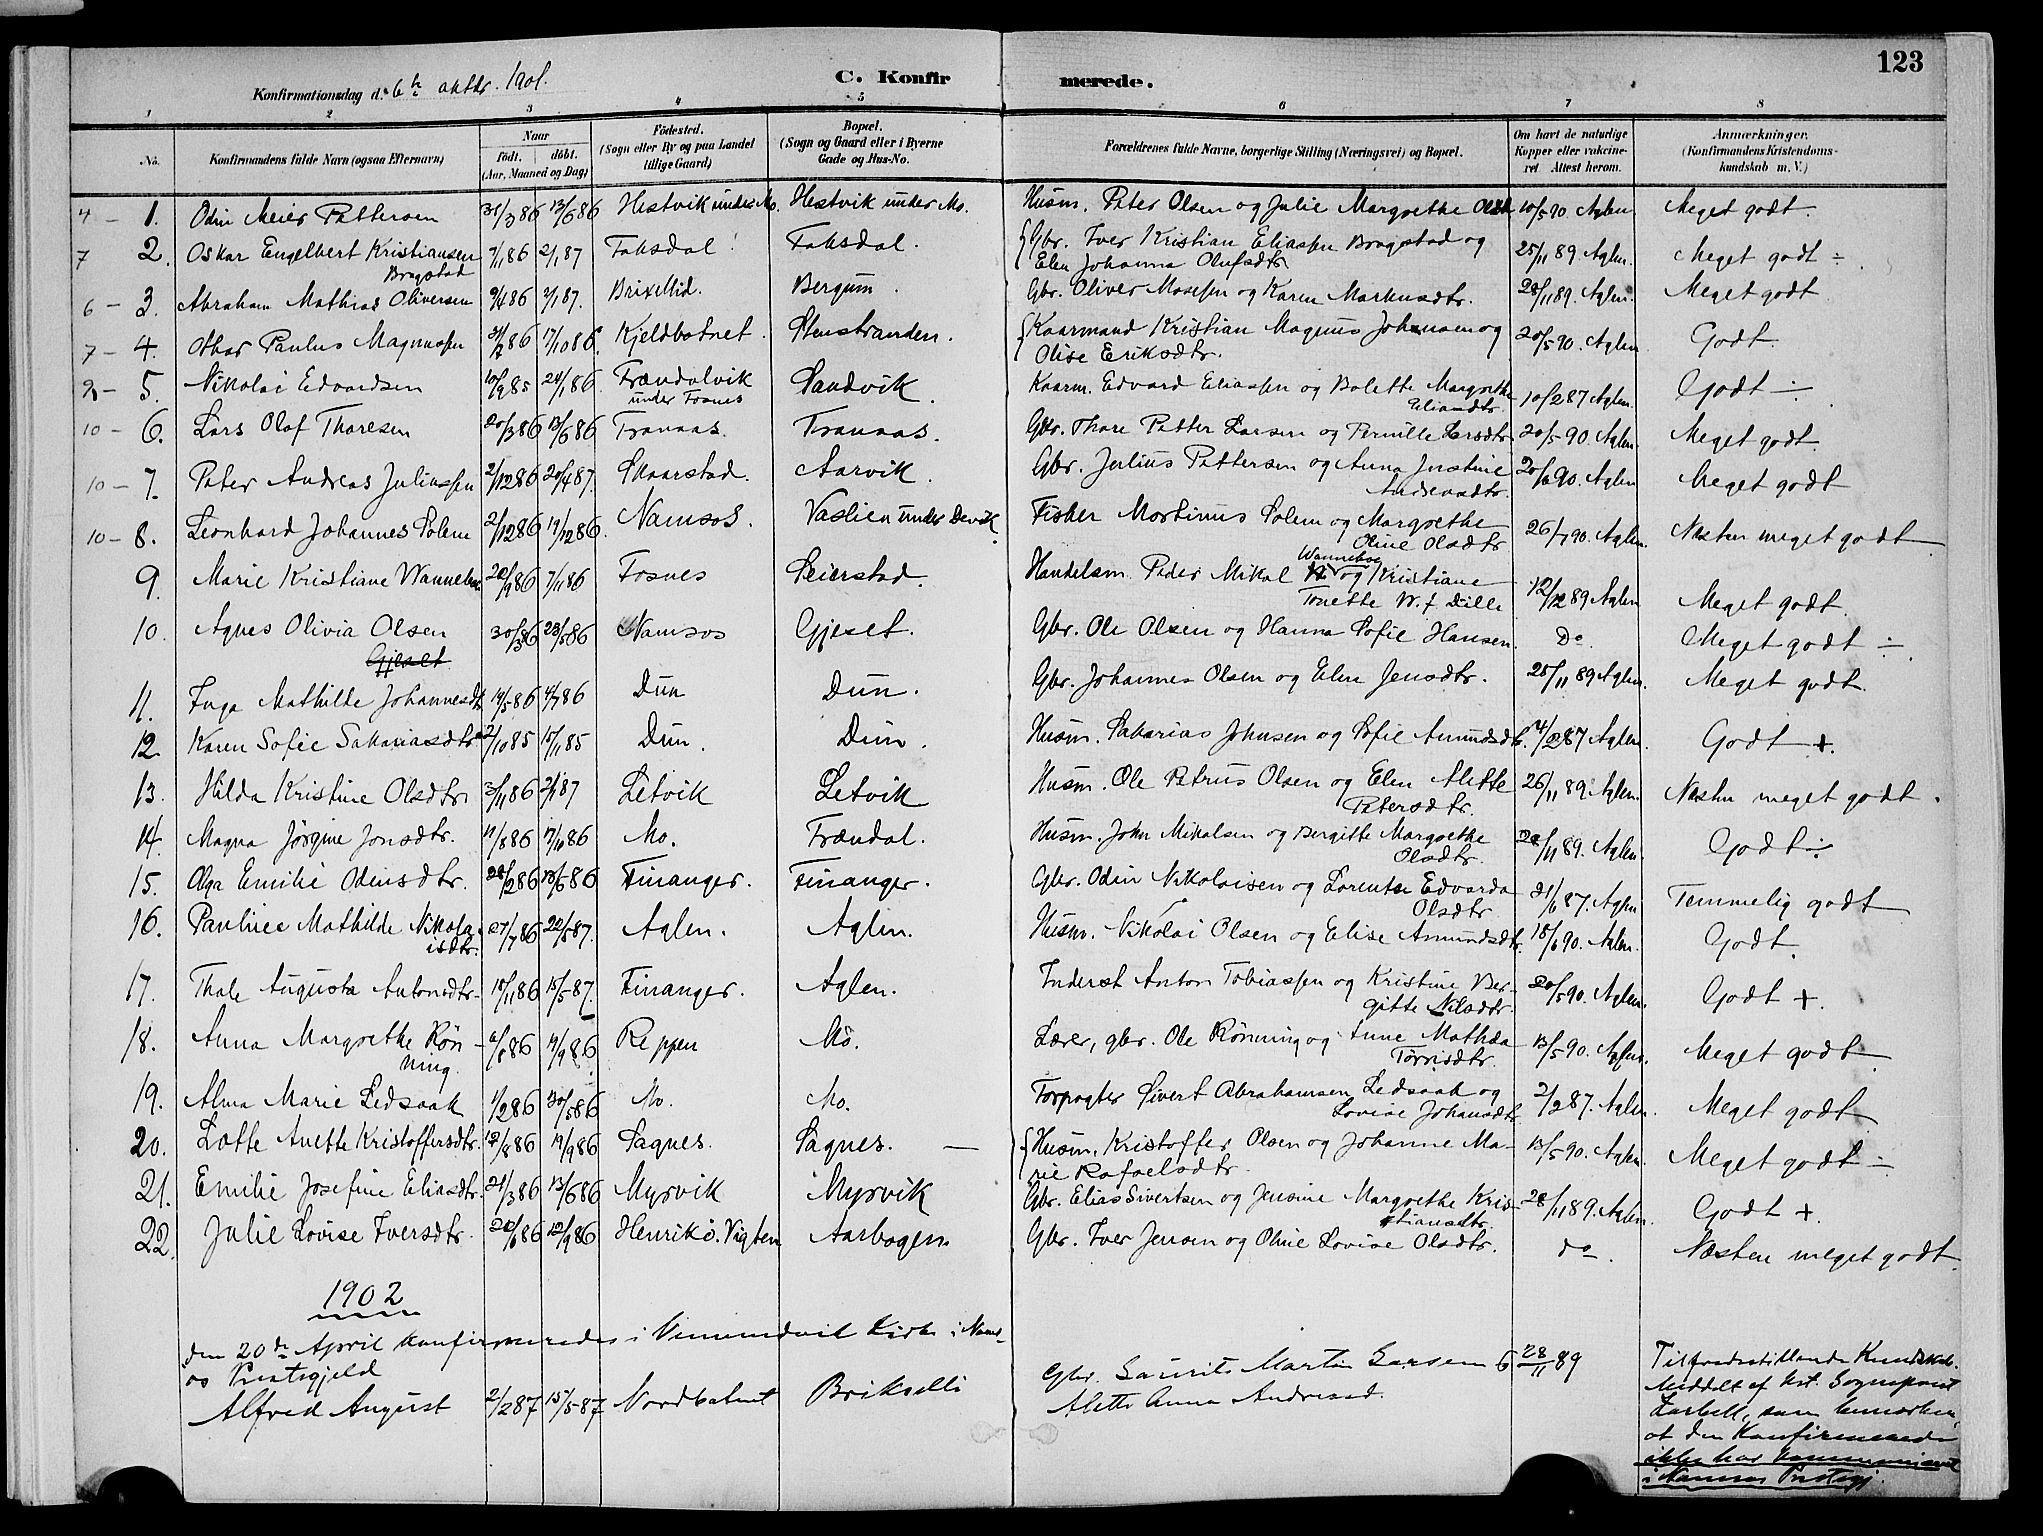 123
C. Konfirmerede.
Konfirmationsdag d. 6te oktbr. 1901.
1 2 3 4 5 6 7 8
No. Konfirmandens fulde Navn (ogsaa Efternavn) Naar født. døbt. (Aar, Maaned og Dag) Fødested. (Sogn eller By og paa Landet tillige Gaard) Bopæl. (Sogn og Gaard eller i Byerne Gade og Hus-No. Forældrenes fulde Navne, borgerlige Stilling (Næringsvei) og Bopæl. Om havt de naturlige Kopper eller vaccineret Attest herom. Anmærkninger. (Konfirmandens Kristendomskundskab m. V.)
4 – 1. Odin Meier Pettersen 31/3 86 13/6 86 Hestvik under Mo. Hestvik under Mo. Husm. Peter Olsen og Julie Margrethe 10/5 90. Aglen Meget godt.
7 2. Oskar Engelbert Kristiansen Bragstad 7/1 86 2/1 87 Faksdal Faksdal. Gbr. Iver Kristian Eliassen Bragstad og Elen Johanna Olufsdtr 25/11 89 Aglen. Meget godt ÷
6 – 3. Abraham Mathias Oliversen 9/4 86 2/1 87. Brixellid. Bergum. Gbr. Oliver Mosesen og Karen Markusdtr. 28/11 89. Aglen. Meget godt
7 – 4. Othar Paulus Magnussen 31/7 86 17/10 86. Kjeldbotnet. Stenstranden. Kaarmand Kristian Magnus Johansen og Olise Eriksdtr. 20/5 90. Aglen Godt.
2 – 5. Nikolai Edvardsen 10/9 85 24/1 86. Frændalvik under Fosnes Sandvik. Kaarm. Edvard Eliassen og Bolette Margrethe Eliasdtr. 10/2 87 Aglen. Godt ÷
10 – 6. Lars Olaf Thoresen 20/3 86 13/6 86 Tranaas. Tranaas. Gbr. Thore Petter Larsen og Pernille Larsdtr. 20/5 90. Aglen. Meget godt.
10 – 7. Peter Andreas Juliussen 2/12 86 20/4 87. Skaarstad. Aarvik. Gbr. Julius Pettersen og Anna Justine Andreasdtr. 20/6 90. Aglen Meget godt
10 – 8. Leonhard Johannes Solem 2/12 86 19/12 86. Namsos. Vaslien under Devik. Fisker Mortinus Solem og Margrethe Oline Olsdtr 26/7 90. Aglen. Næsten meget godt
9. Marie Kristiane Wannebo 20/9 86 7/11 86 Fosnes Seierstad. Handelsm. Peder Mikal Wannebo og Kristiane Tonette W. f. Dille 12/12 89 Aglen Meget godt.
10. Agnes Olivia Olsen Gjeset 30/3 86 23/5 86 Namsos Gjeset. Gbr. Ole Olsen og Hanna Sofie Hansen. Do. Meget godt ÷
11. Inga Mathilde Johannesdtr 14/5 86 4/7 86 Dun Dun. Gbr. Johannes Olsen og Elen Jensdtr. 25/11 89 Aglen. Meget godt.
12. Karen Sofie Sakariasdtr 2/10 85 15/11 85 Dun. Dun. Husm. Sakarias Johnsen og Sofie Amundsdtr. 4/2 87 Aglen. Godt +.
13. Hilda Kristine Olsdtr 3/11 86 2/1 87 Letvik Letvik Husm. Ole Petrus Olsen og Elen Alette Petersdtr. 26/11 89 Aglen. Næsten meget godt.
14. Magna Jørgine Jonsdtr. 11/8 86 17/10 86 Mo. Frændal. Husm. John Mikalsen og Bergitte Margrethe Olsdtr. 28/11 89. Aglen. Godt ÷
15. Olga Emilie Odinsdtr. 28/2 86 13/6 86 Finanger. Finanger. Gbr. Odin Nikolaisen og Lorentse Edvarda Olsdtr. 21/6 87. Aglen Temmelig godt
16. Pauline Mathilde Nikolaisdtr. 27/7 86 22/5 87. Aglen. Aglen. Husm. Nikolai Olsen og Elise Amundsdtr. 18/6 90. Aglen. Godt.
17. Thale Augusta Antonsdtr. 18/11 86 15/5 87. Finanger. Aglen. Inderst Anton Tobiassen og Kristine Bergitte Nilsdtr. 20/5 90. Aglen. Godt +.
18. Anna Margrethe Rønning. 6/8 86 19/9 86 Reppen Mo. Lærer, gbr. Ole Rønning og Anne Mathea Torrisdtr. 13/5 90. Aglen. Meget godt.
19. Alma Marie Ledsaak 1/2 86 30/5 86 Mo. Mo. Forpagter Sivert Abrahamsen Ledsaak og Lovise Johansdtr. 2/2 87. Aglen. Meget godt
20. Lotte Anette Kristoffersdtr. 12/8 86 19/9 86 Sagnes. Sagnes. — Husm. Kristoffer Olsen og Johanne Marie Rafaelsdtr. 13/5 90. Aglen. Meget godt ÷
21. Emilie Josefine Eliasdtr. 21/3 86 13/6 86 Myrvik Myrvik Gbr. Elias Sivertsen og Jensine Margrethe Kristiansdtr. 28/11 89. Aglen. Godt +.
22. Julie Lovise Iversdtr. 20/6 86 12/9 86 Henrikø. Vigten Aarbogen. Gbr. Iver Jensen og Oline Lovise Olsdtr. do. Næsten meget godt
1902
den 20de April konfirmeredes i Vemundvik Kirke i Namsos Prestegjeld
Alfred August 2/2 87 15/5 87 Nordbotnet Brikselli Gbr. Laurits Martin Larsen & Alette Anna Andreasd. 28/11 89 Tilfredsstillende Kundskab. Meddelt af Sognepræst som bemærker, at den Konfirmerede ikke har kommuniceret i Namsos Prestegj.